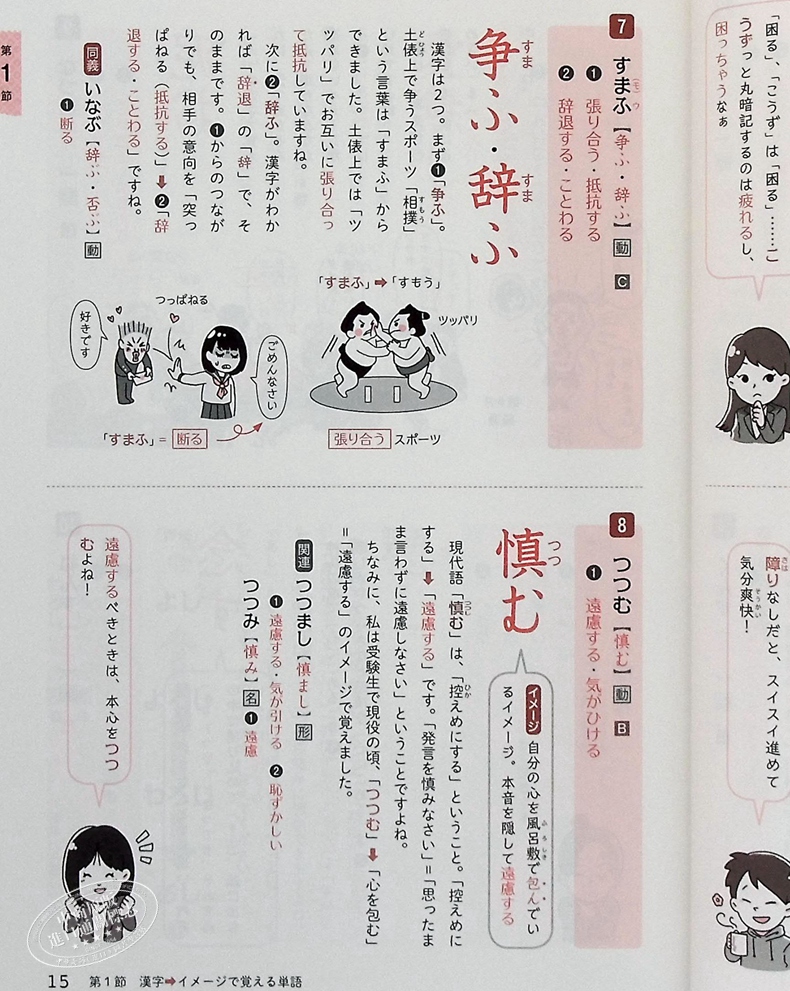 「困る」、「こうず」は「困る」……こ
うずっと丸暗記するのは疲れるし、
困っちゃうなぁ
障りなしだと、スイスイ進めて
気分爽快！
7 すまふ【争ふ・辞ふ】動 C
❶ 張り合う・抵抗する
❷ 辞退する・ことわる
争ふ・辞ふ
漢字は2つ。まず❶「争ふ」。
土俵上で争うスポーツ「相撲」
という言葉は「すまふ」から
できました。土俵上では「ツ
ッパリ」でお互いに張り合っ
て抵抗していますね。
次に❷「辞ふ」。漢字がわか
れば「辞退」の「辞」で、そ
のままです。❶からのつなが
りでも、相手の意向を「突っ
ぱねる（抵抗する）」➡❷「辞
退する・ことわる」ですね。
同義 いなぶ【辞ぶ・否ぶ】動
❶断る
「すまふ」➡「すもう」
ツッパリ
張り合う スポーツ
つっぱねる
好きです
ごめんなさい
「すまふ」＝断る
8 つつむ【慎む】動 B
❶ 遠慮する・気がひける
慎む
イメージ 自分の心を風呂敷で包んでい
るイメージ。本音を隠して遠慮する
現代語「慎む」は、「控えめにする」ということ。「控えめに
する」➡「遠慮する」です。「発言を慎みなさい」＝「思ったま
ま言わずに遠慮しなさい」ということですよね。
ちなみに、私は受験生で現役の頃、「つつむ」➡「心を包む」
＝「遠慮する」のイメージで覚えました。
関連 つつまし【慎まし】形
❶遠慮する・気が引ける ❷恥ずかしい
つつみ【慎み】名❶遠慮
遠慮するべきときは、本心をつつ
むよね！
第1節
15 第1節 漢字➡イメージで覚える単語